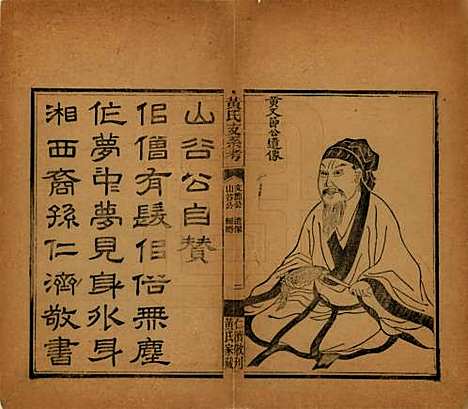 黄文節公遺像
黃氏支系考
文節公 遺像
山谷公
二
仁濟敬刋
黃氏家藏
山谷公自贊
佀僧有髮佀俗無塵
作夢中夢見身外身
湘西裔孫仁濟敬書